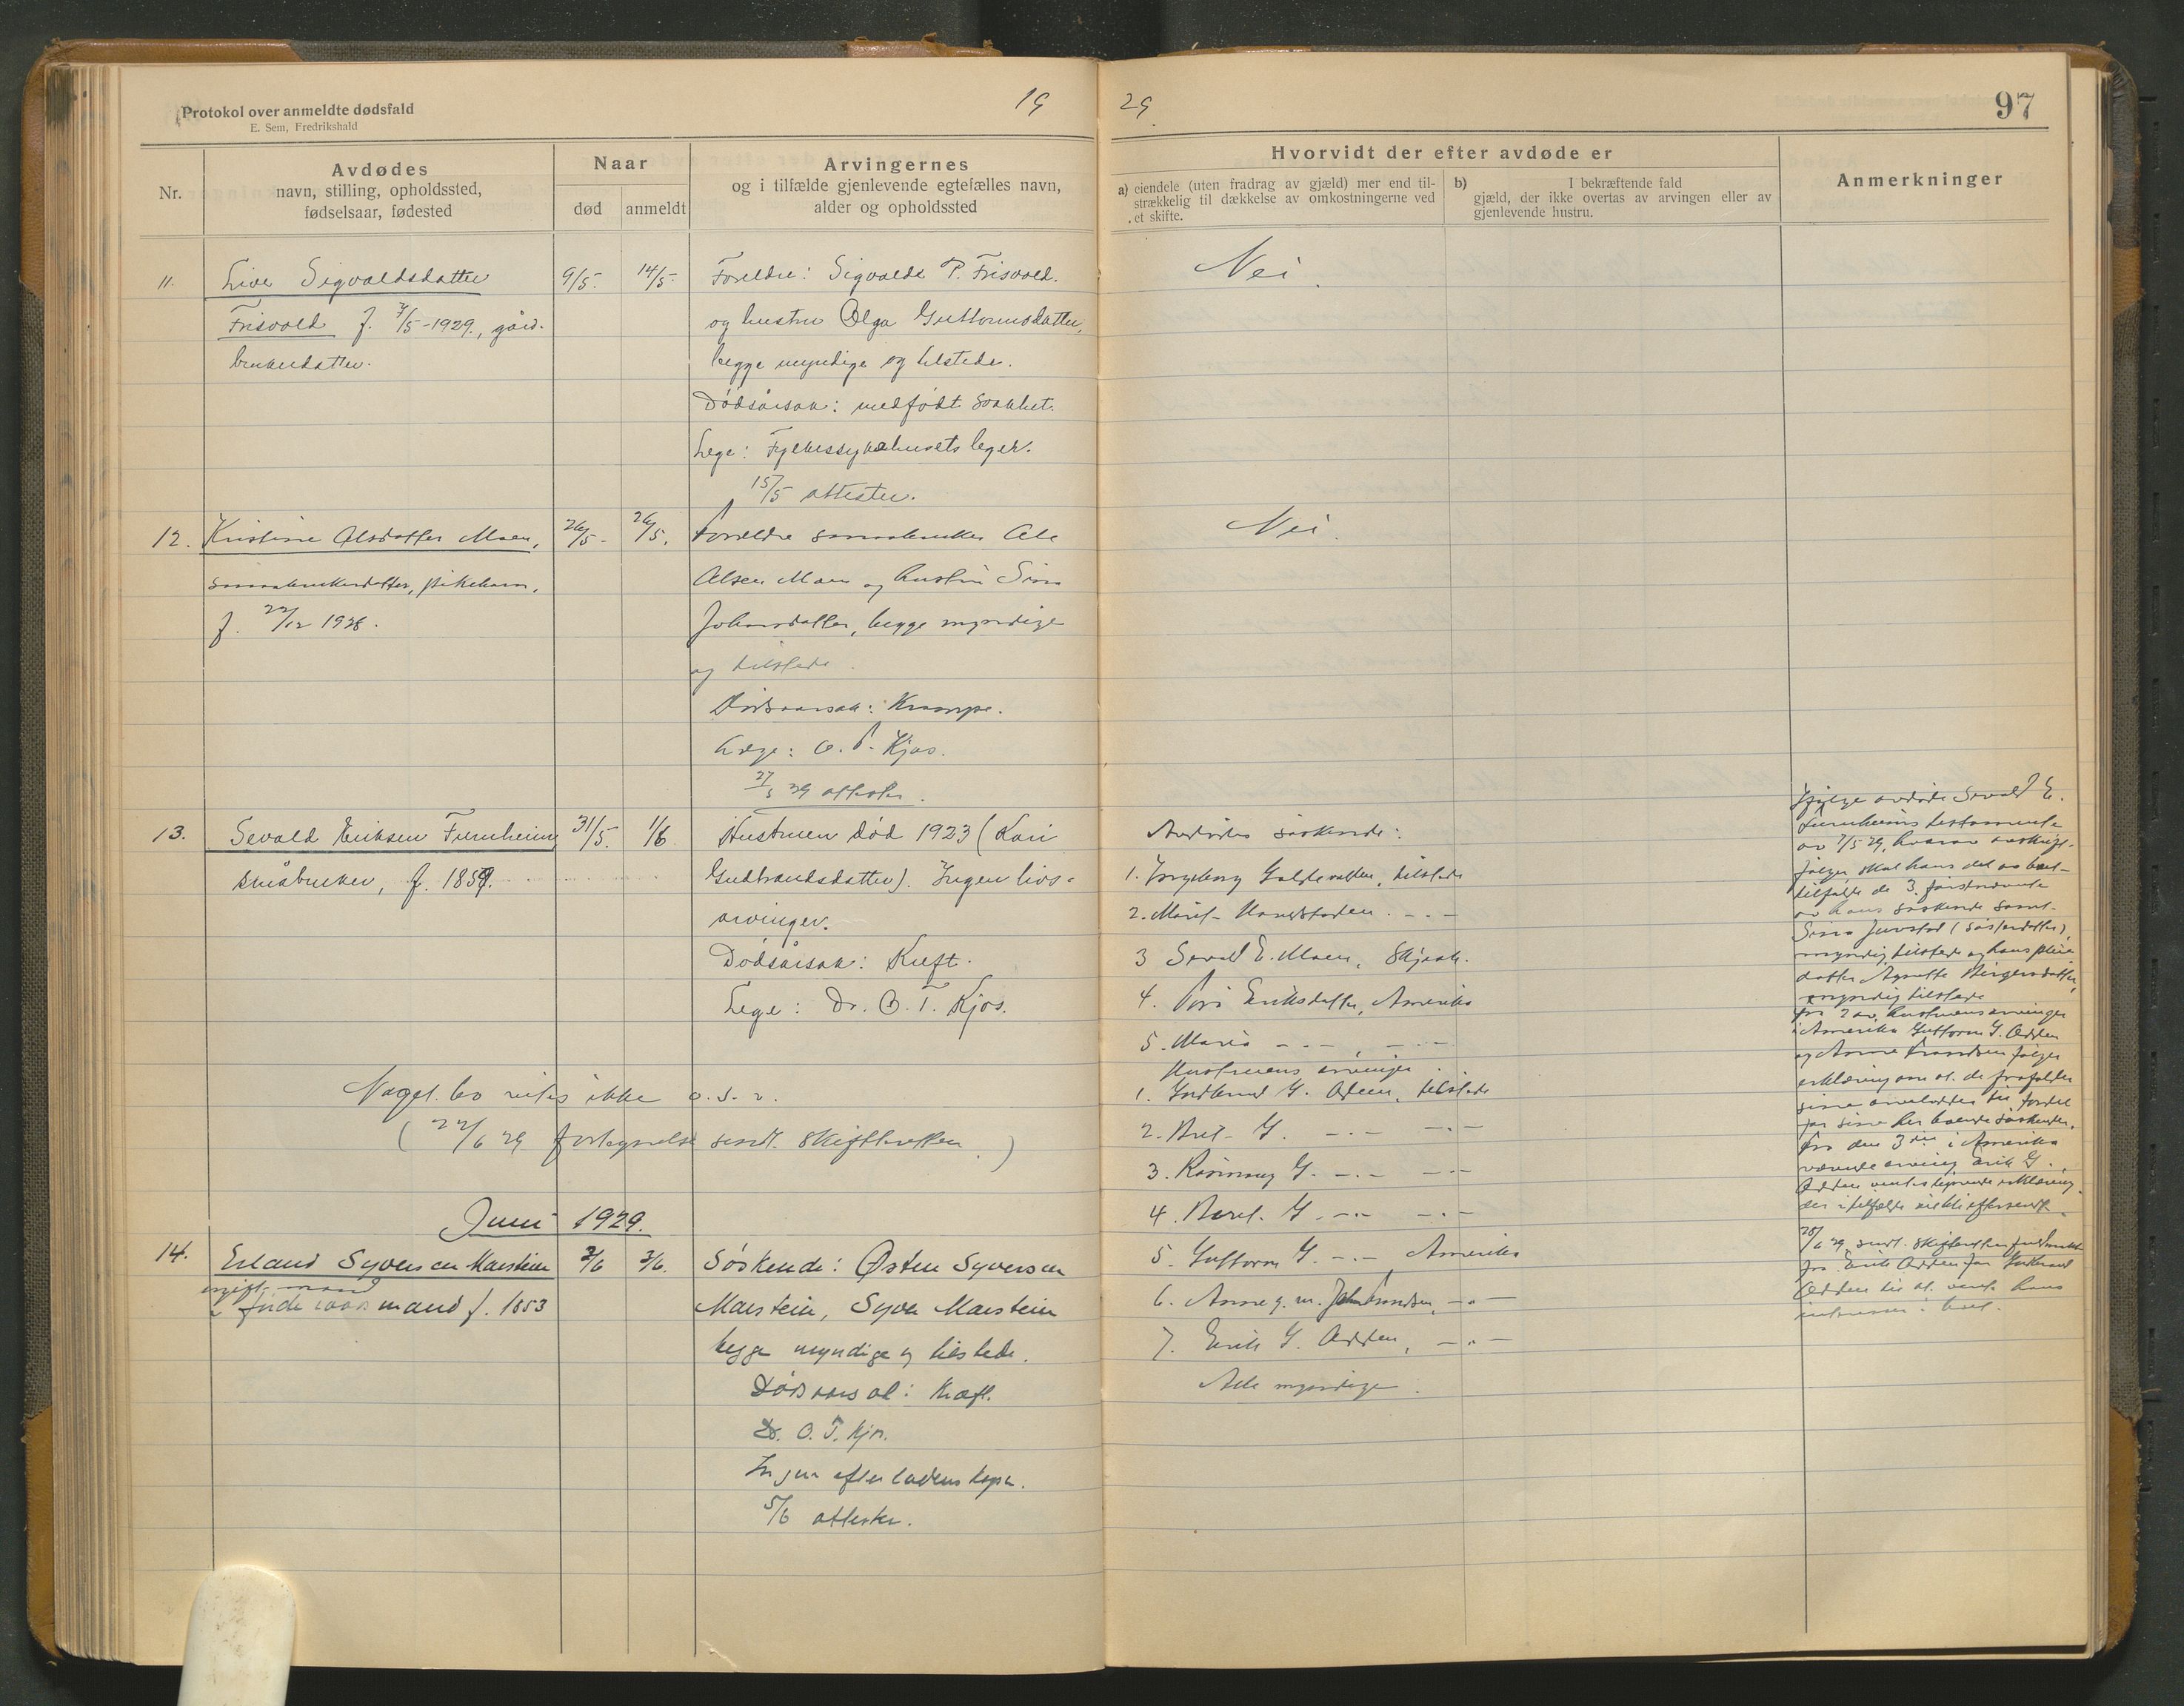 Protokol over anmeldte dødsfald
E. Sem, Fredrikshald
19
29.
97
Nr.
Avdødes
navn, stilling, opholdssted,
fødselsaar, fødested
Naar
død
anmeldt
Arvingernes
og i tilfælde gjenlevende egtefælles navn,
alder og opholdssted
Hvorvidt der efter avdøde er
a) eiendele (uten fradrag av gjæld) mer end til-
strækkelig til dækkelse av omkostningerne ved
et skifte.
b) I bekræftende fald
gjæld, der ikke overtas av arvingen eller av
gjenlevende hustru.
Anmerkninger
11. Live Sigvaldsdatter 9/5. 14/5. Foreldre: Sigvalde P. Frisvold. Nei.
Frisvold f. 7/5-1929., gård- og hustru Olga Guttormsdatter,
brukerdatter. begge myndige og tilstede.
Dødsårsak: medfødt svakhet.
Lege: Fylkessykehusets leger.
15/5 attester.
12. Kristine Olsdatter Moen, 26/5- 26/5. Foreldre smaabruker Ole Nei.
smaabrukerdatter, pikebarn, Olsen Moen og hustru Sina
f. 22/12 1928. Johansdatter, begge myndige
og tilstede.
Dødsaarsak: Krampe.
Læge: O. T. Kjos.
27/5 29 attester.
13. Sevald Eriksen Furuheim 31/5. 1/6. Hustruen død 1923 (Kari
småbruker, f. 1859. Gudbrandsdatter). Ingen livs-
arvinger.
Dødsårsak: Kreft.
Lege: Dr. O. T. Kjos.
Noget bo ikke o.s.v.
(22/6 29 fortegnelse sendt skifteretten.)
Avdødes søskende:
1. Ingeborg tilstede
2. Marit
3 Sevald E. Moen, Skjaak.
4. Eriksdatter, Amerika
5. Maria -"- , -"-
Hustruens arvinger.
1. Gudbrand G. Odden, tilstede
2. Brit G. -"- -"-
3. Rønnaug G. -"- -"-
4. Beret G. -"- -"-
5. Guttorm G. -"- Amerika
6. Anne g. m. -"-
7. Erik G. Odden, -"-
Alle myndige.
Ifølge avdøde Sevald E.
Furuheims testamente
av 7/5 29, hvorav avskrift
følger, skal hans del av boet
tilfalde de 3 førstnævnte
av hans søskende samt
Sina (søsterdatter),
myndig, tilstede og hans pleie-
datter Agnethe Birgersdatter,
myndig tilstede
fra 2 av hustruens arvinger
i Amerika Guttorm G. Odden
og Anne følger
erklæring om at de frafalder
sine arvelodder til fordel
for sine her boende søskende.
Fra den 3die i Amerika
værende arving Erik G.
Odden ventes lignende erklæring,
der i tilfælde
28/6 29 sendt skifteretten fuldmakt
fra Erik Odden for Gudbrand
Odden til at vareta hans
interesser i boet.
Juni 1929.
14. Erland Syversen Marstein 2/6 3/6. Søskende: Østen Syversen
ugift mand
mand f. 1853 Marstein, Syver Marstein
begge myndige og tilstede.
Dødsaarsak: Kræft.
Dr. O. T. Kjos.
Ingen efterladenskaper.
5/6 attester.